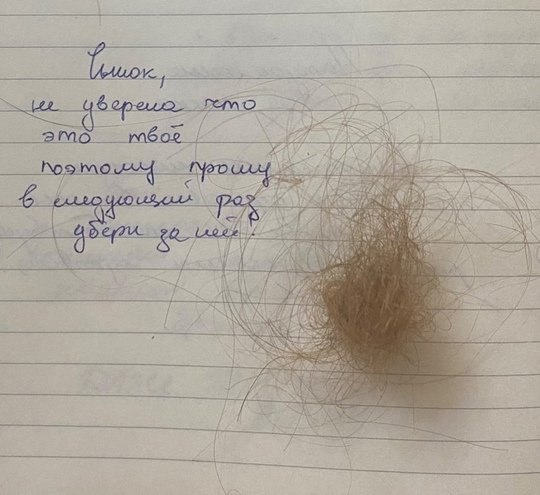 Сынок,
не уверена что
это твоё
поэтому прошу
в следующий раз
убери за ней!